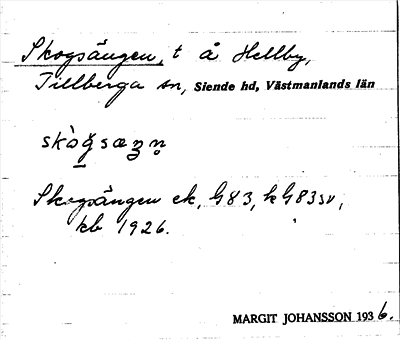 Skogsängen, t å Hellby,
Tillberga sn, Siende hd, Västmanlands län
skògsæŋn̥
Skogsängen ek, G83, kG83sv,
kb 1926.
MARGIT JOHANSSON 1936.